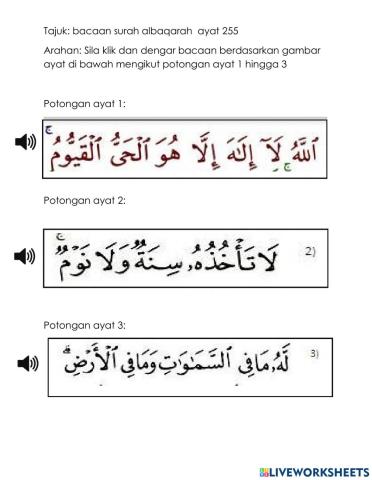 Tajuk: bacaan surah albaqarah ayat 255
Arahan: Sila klik dan dengar bacaan berdasarkan gambar
ayat di bawah mengikut potongan ayat 1 hingga 3
Potongan ayat 1:
ٱللَّهُ لَآ إِلَٰهَ إِلَّا هُوَ ٱلْحَىُّ ٱلْقَيُّومُ ۚ
Potongan ayat 2:
2) لَا تَأْخُذُهُۥ سِنَةٌ وَلَا نَوْمٌ ۚ
Potongan ayat 3:
3) لَّهُۥ مَا فِى ٱلسَّمَٰوَٰتِ وَمَا فِى ٱلْأَرْضِ ۗ
LIVEWORKSHEETS